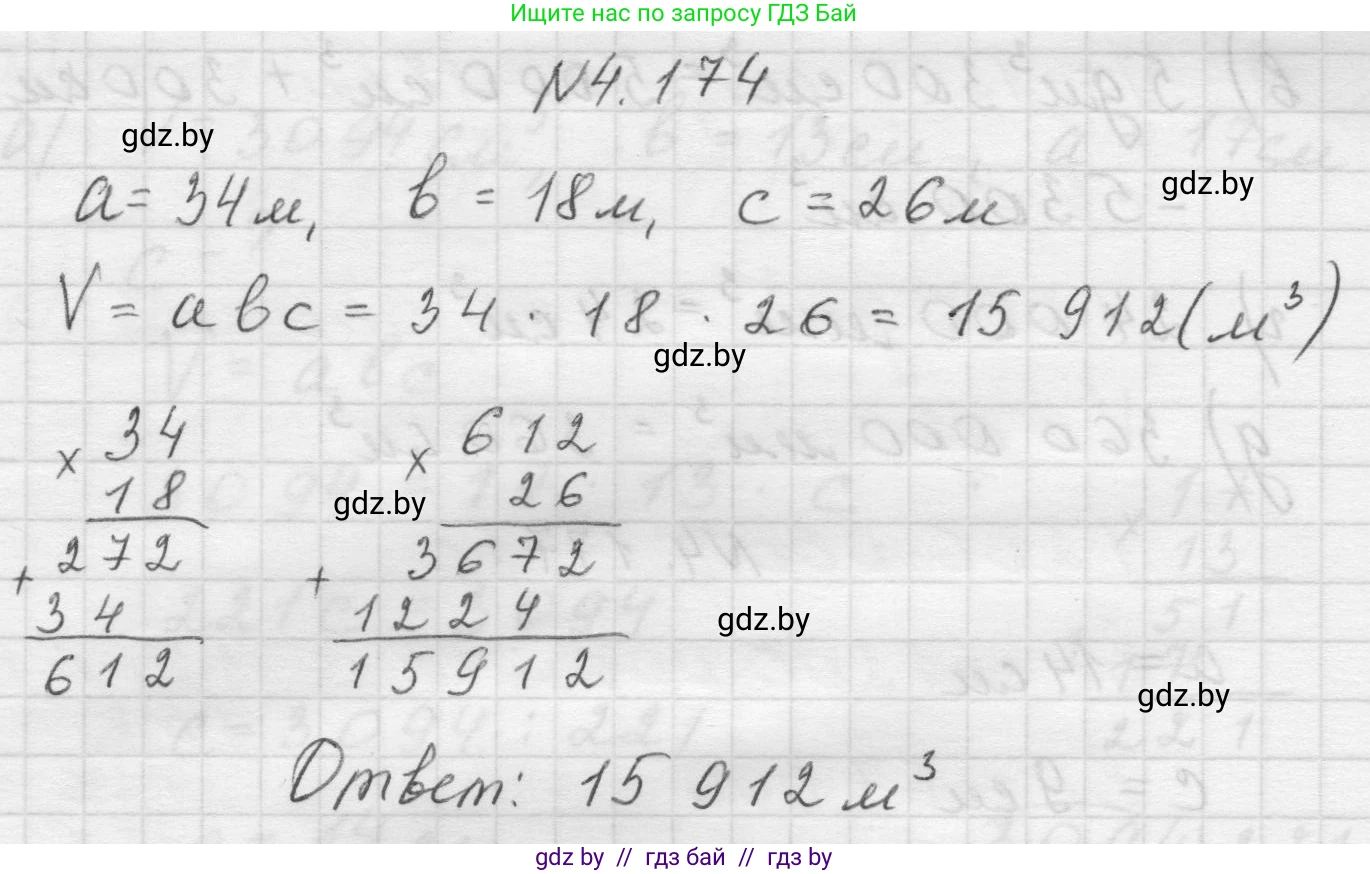 Ищите нас по запросу ГДЗ Бай
N4.174
gdz.by
a = 34 м, в = 18 м, с = 26 м
gdz.by
V = a в с = 34 · 18 · 26 = 15 912 (м³)
gdz.by
34
× 18
272
+ 34
612
612
× 26
3672
+ 1224
15912
gdz.by
gdz.by
gdz.by
Ответ: 15 912 м³
gdz by // гдз бай // гдз by